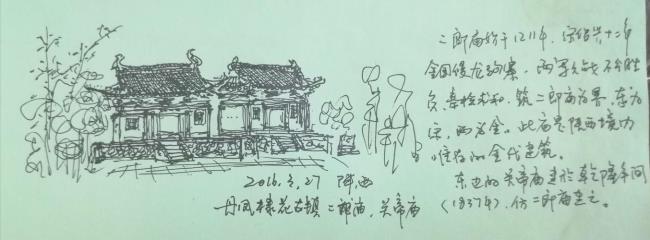 二郎庙始于1211年，宋绍兴十二年
金国侵龙驹寨，两军久战不分胜
负，秦桧求和，筑二郎庙为界，东为
宋，西为金。此庙是陕西境内
唯存的金代建筑。
东边的关帝庙建於乾隆年间
（1837年），仿二郎庙建之。
2016.3.27 陕西
丹凤棣花古镇 二郎庙、关帝庙